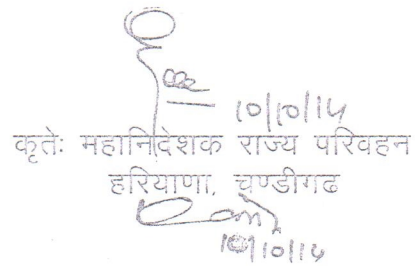 10/10/14
कृतेः महानिदेशक राज्य परिवहन
हरियाणा, चण्डीगढ
10/10/14